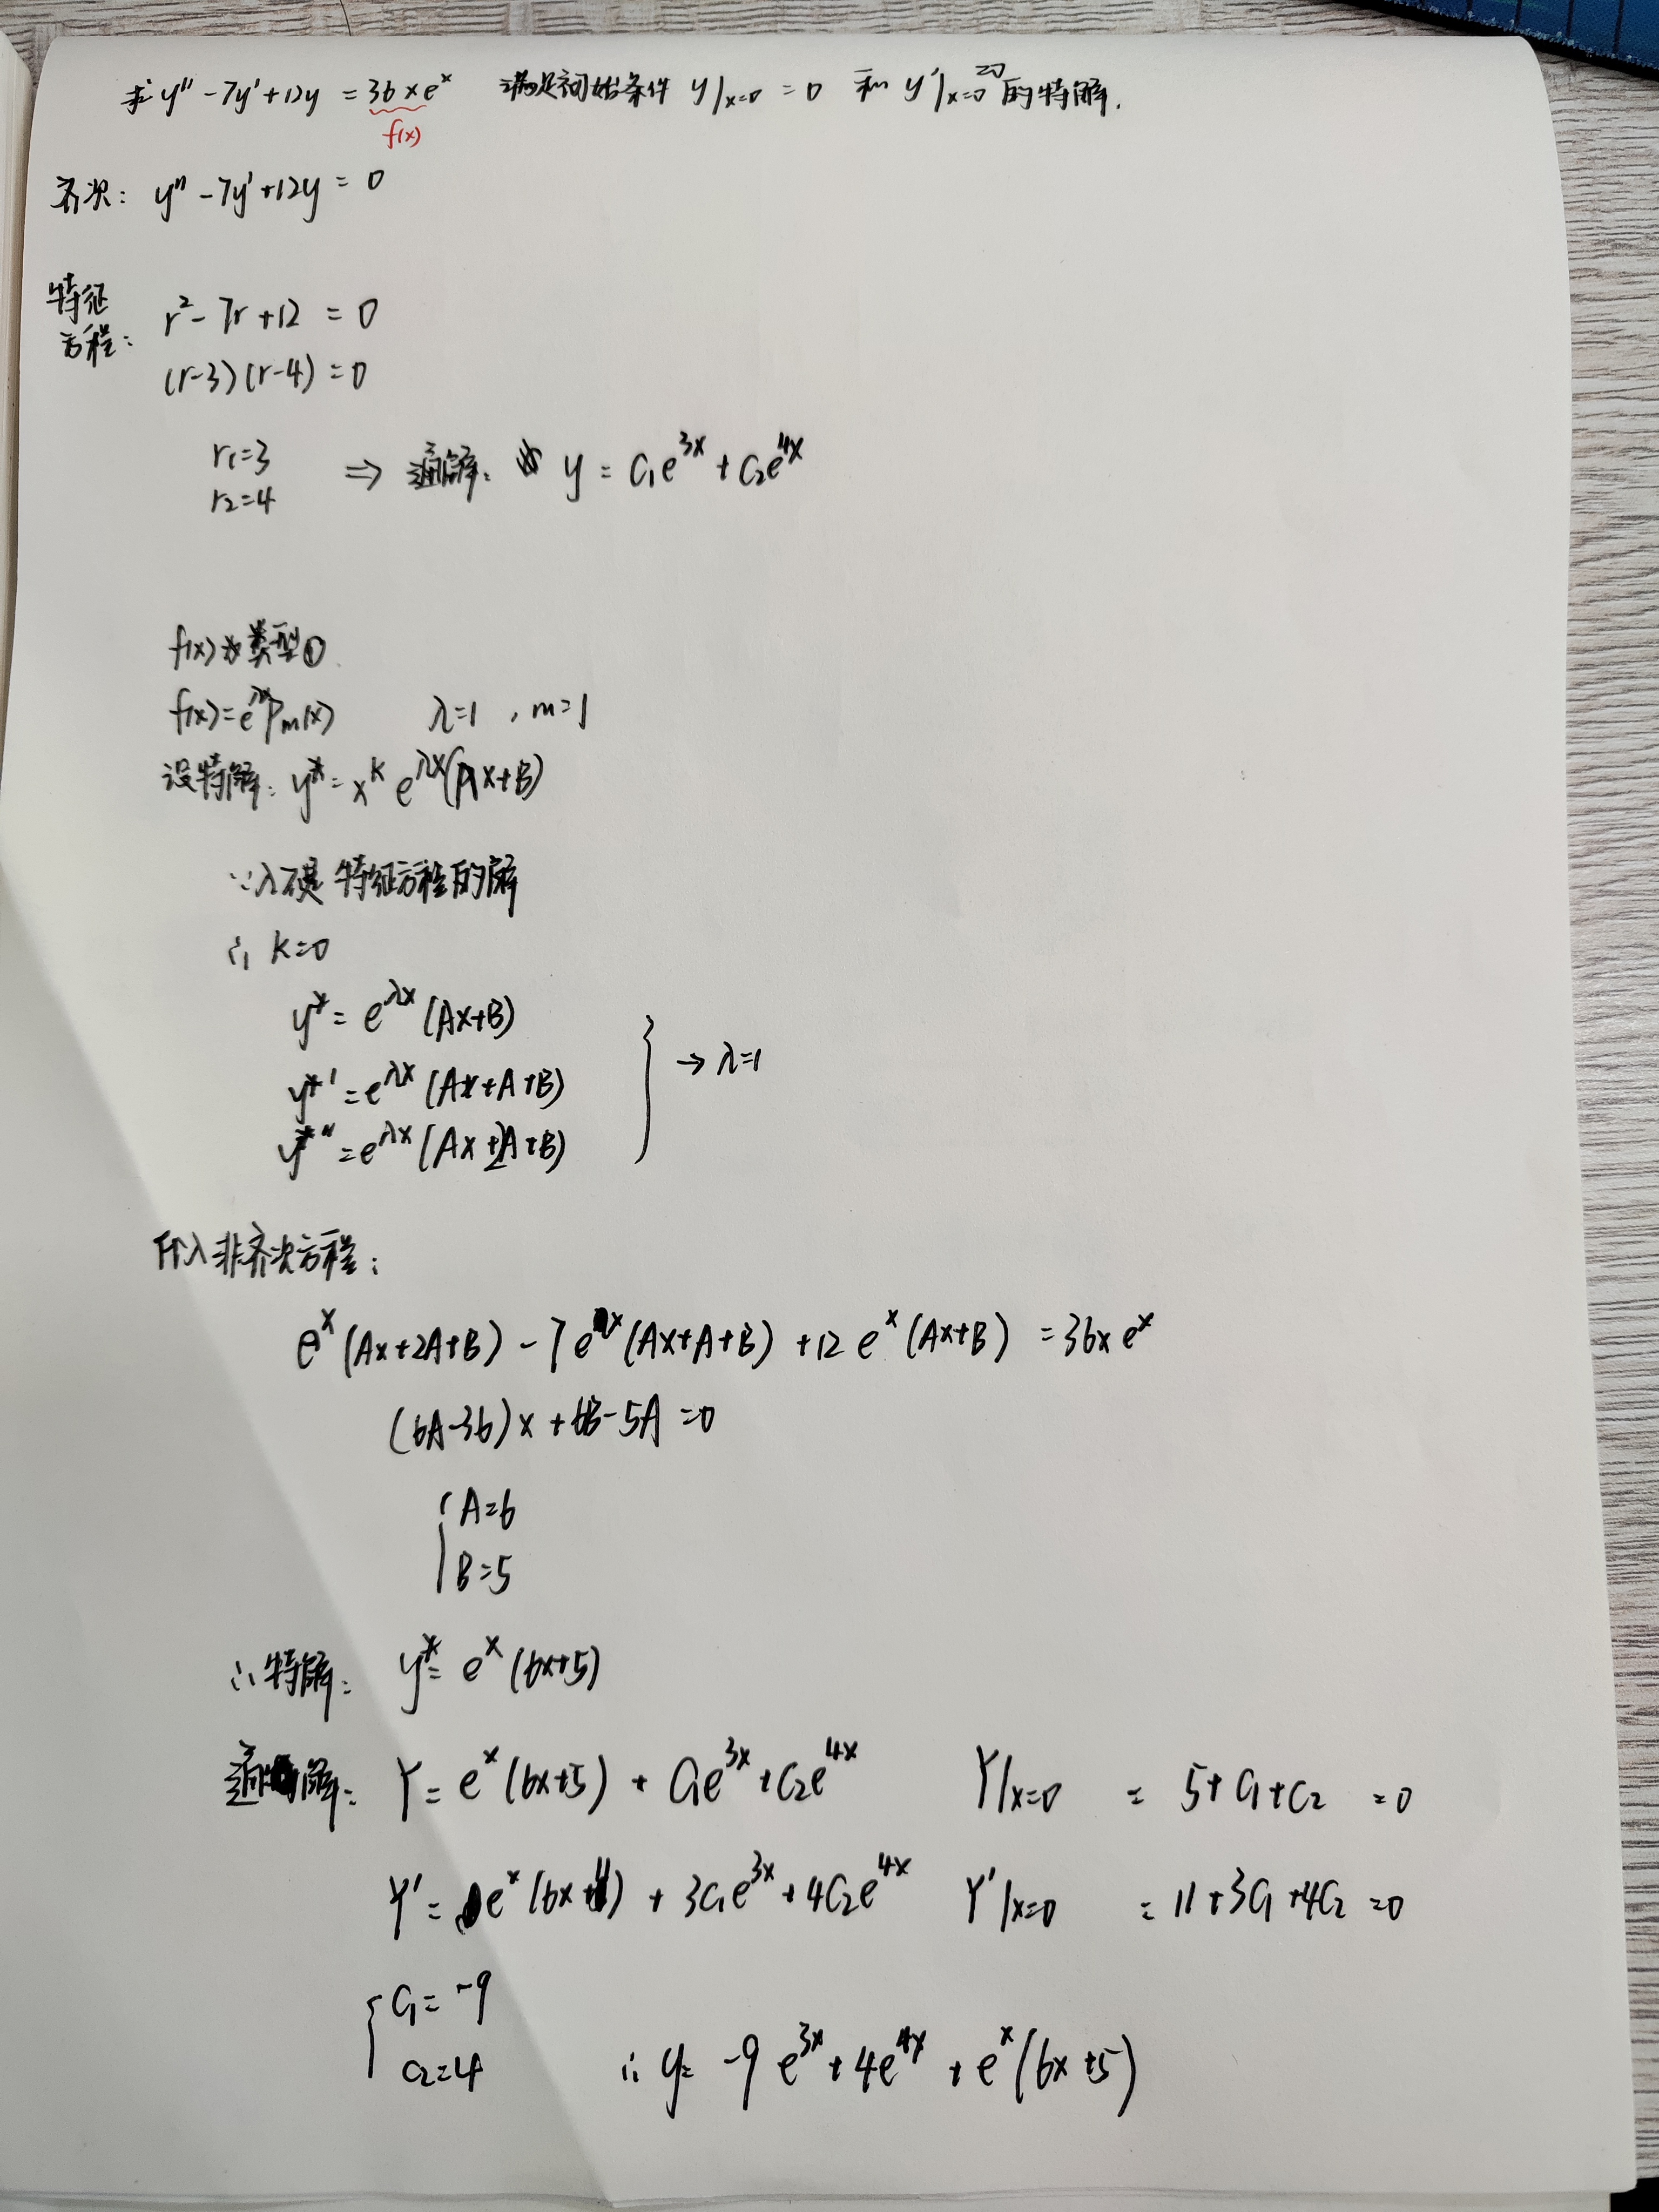 求 y'' - 7y' + 12y = 36xe^x 满足初始条件 y|x=0 = 0 和 y'|x=0 =0 的特解.
f(x)
齐次: y'' - 7y' + 12y = 0
特征方程: r² - 7r + 12 = 0
(r-3)(r-4) = 0
r₁=3
r₂=4
⇒ 通解: y = C₁e^3x + C₂e^4x
f(x)为类型①
f(x) = e^λx Pm(x) λ=1 , m=1
设特解: y* = x^k e^λx(Ax+B)
∵λ不是特征方程的解
∴ k=0
y* = e^λx (Ax+B)
y*' = e^λx (Ax+A+B) } → λ=1
y*'' = e^λx (Ax+2A+B)
代入非齐次方程:
e^x (Ax+2A+B) - 7e^x (Ax+A+B) + 12e^x (Ax+B) = 36xe^x
(6A-36)x + 6B - 5A = 0
{ A=6
B=5
∴特解: y* = e^x (6x+5)
通解: Y = e^x (6x+5) + C₁e^3x + C₂e^4x Y|x=0 = 5+C₁+C₂ = 0
Y' = e^x (6x+11) + 3C₁e^3x + 4C₂e^4x Y'|x=0 = 11+3C₁+4C₂ = 0
{ C₁ = -9
C₂=4
∴ y = -9e^3x + 4e^4x + e^x (6x+5)